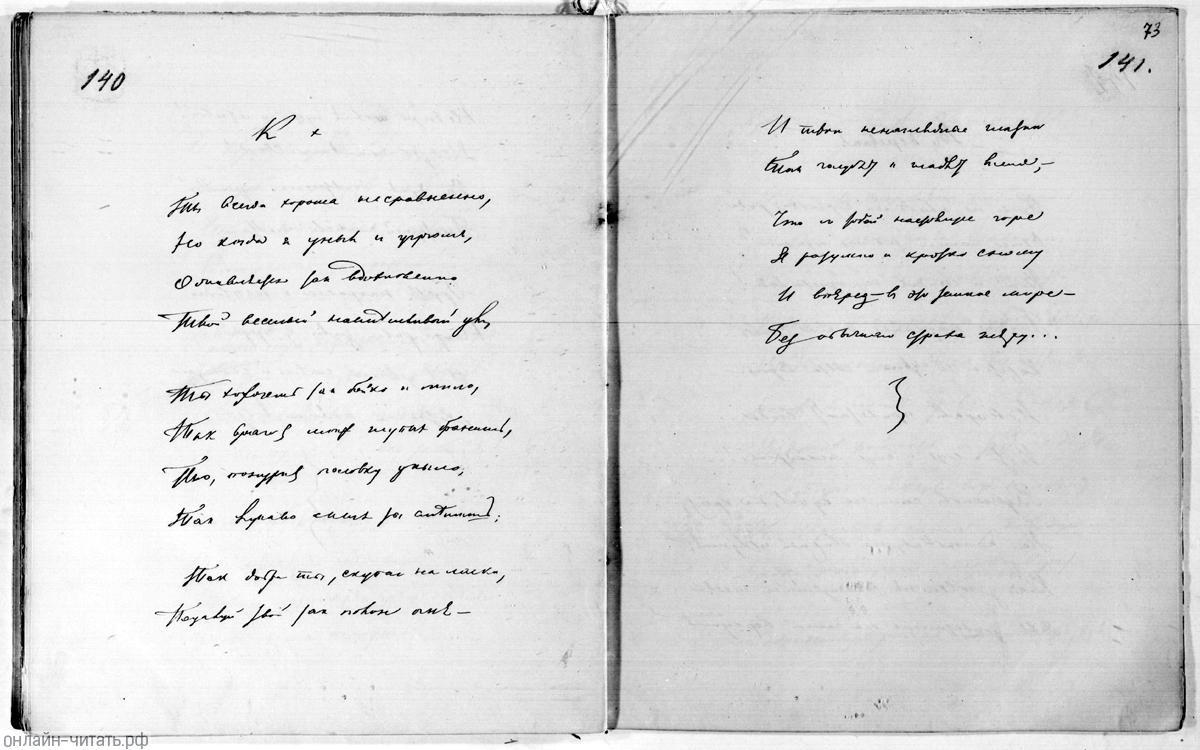 140
К х
Ты всегда хороша несравненно,
Но когда я уныл и угрюм,
Оживляется так вдохновенно
Твой веселый насмешливый ум,
Ты хохочешь так бойко и мило,
Так врагов моих глупых бранишь,
То, понурив головку уныло,
Так лукаво меня ты смешишь;
Так добра ты, скупая на ласки,
Поцалуй твой так полон огня –
73
141.
И твои ненаглядные глазки
Так голубят и гладят меня, –
Что с тобой настоящее горе
Я разумно и кротко сношу
И вперед – в это темное море –
Без обычного страха гляжу...
онлайн-читать.рф